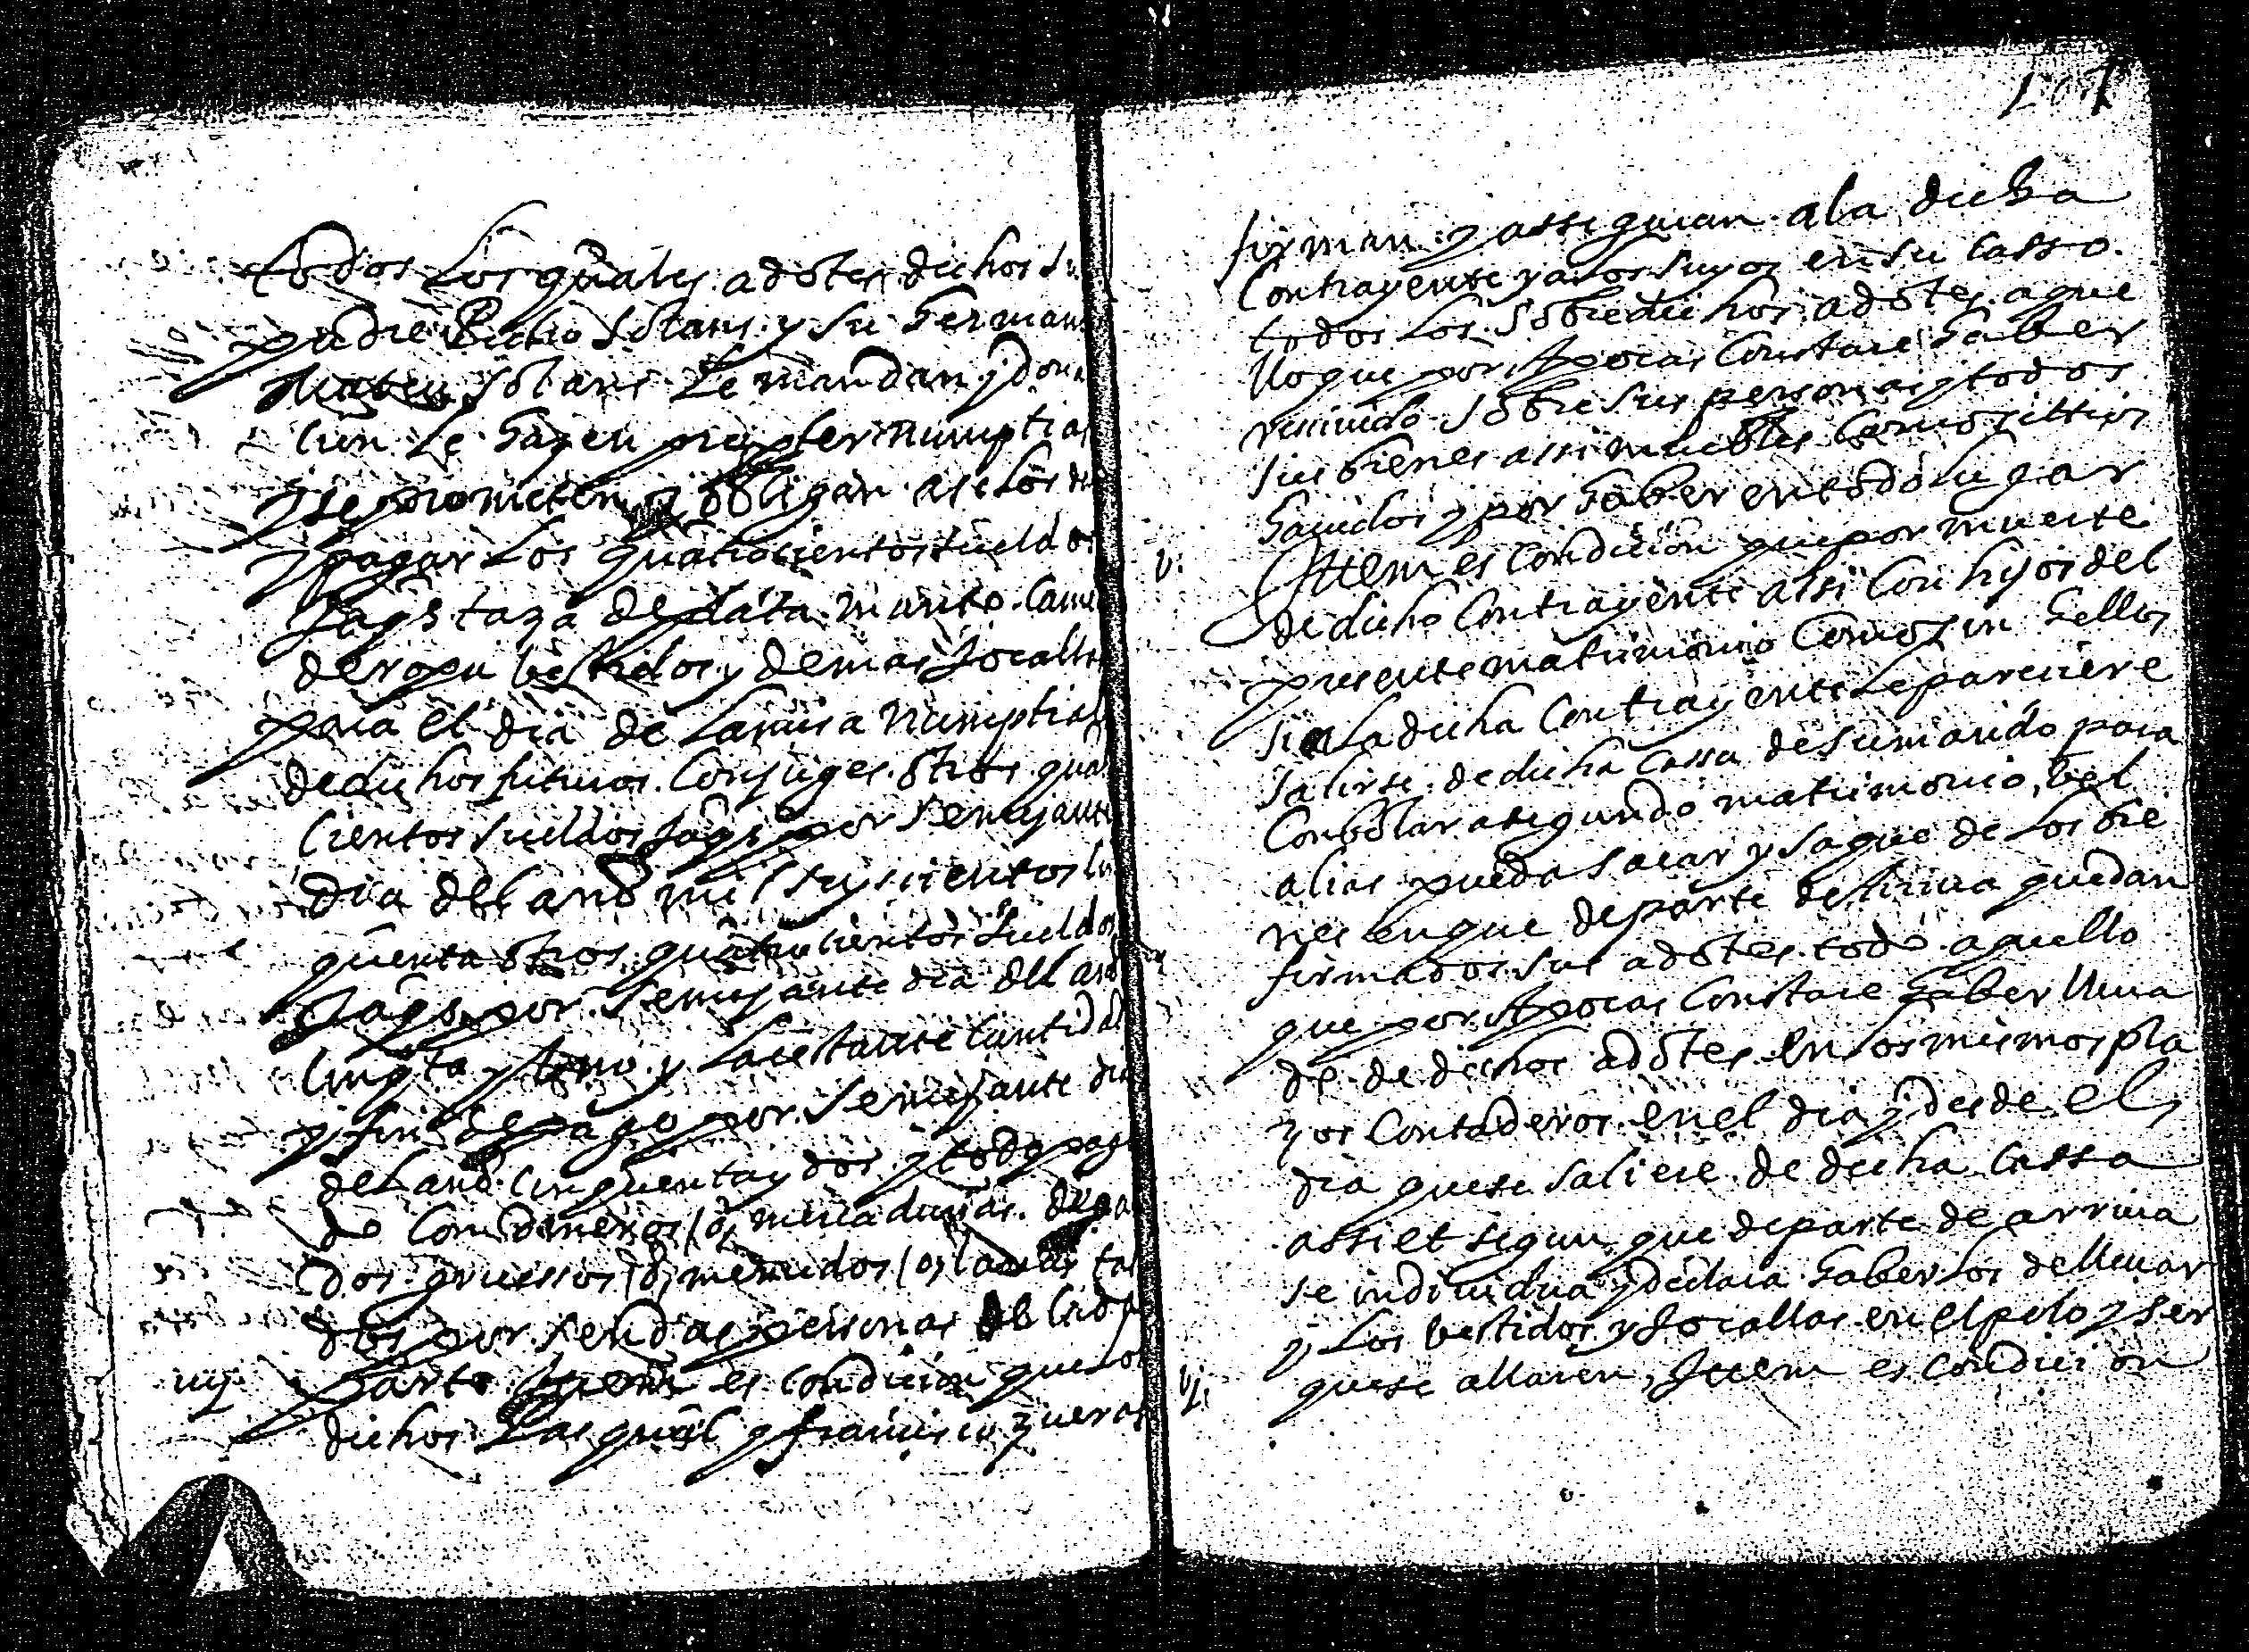 todos Los quales adotes dichos su
padre Pedro Solans y su Hermano
Mateu Solans Le mandan y dona
cion Le hazen propter numptias
y se prometen y obligan a se los dar
y pagar Los quatrocientos sueldos
Jaqs taza de plata manto Cama
de ropa bestidos y demas Jocallas
para el dia de La missa Numptial
de dichos futuros Conjuges otros quatro
cientos sueldos Jaqs por Semejante
dia del año mil seyscientos cin
quenta otros quatrocientos sueldos
Jaqs por Semejante dia del año
cinqta y uno y La restante cantidad
y fin de pago por Semejante dia
del año cinquenta y dos y todo paga
do Con dineros /o/ mercadurias
dos gruessos /o/ menudos /o/ tal
dos por sendas personas de cada
iiij parte Ittem es Condicion que Los
dichos Pasqual y francisco Zueras
167
firman y assiguran a la dicha
Contrayente y a los suyos en su casso
todos Los Sobredichos adotes aque
llo que por Apocas Constare haber
recivido Sobre sus personas y todos
sus bienes assi muebles Como sittios
havidos y por haber en todo lugar
v. Ittem es Condicion que por muerte
de dicho Contrayente assi Con hijos del
presente matrimonio Como sin hellos
si a La dicha Contrayente Le pareciere
salirse de dicha Cassa de su marido para
Conbolar a segundo matrimonio, vel
alias pueda sacar y saque de Los bie
nes en que de parte de arriva quedan
firmados sus adotes todo aquello
que por Apocas Constare haber lleva
do de dichos adotes en Los mismos pla
zos Contaderos en el dia y desde el
dia que se saliere de dicha Cassa
assi et segun que de parte de arriva
se individua y declara haberlos de llevar
y Los bestidos y Jocallas en el pelo y ser
vj. que se allaren, Ittem es Condicion